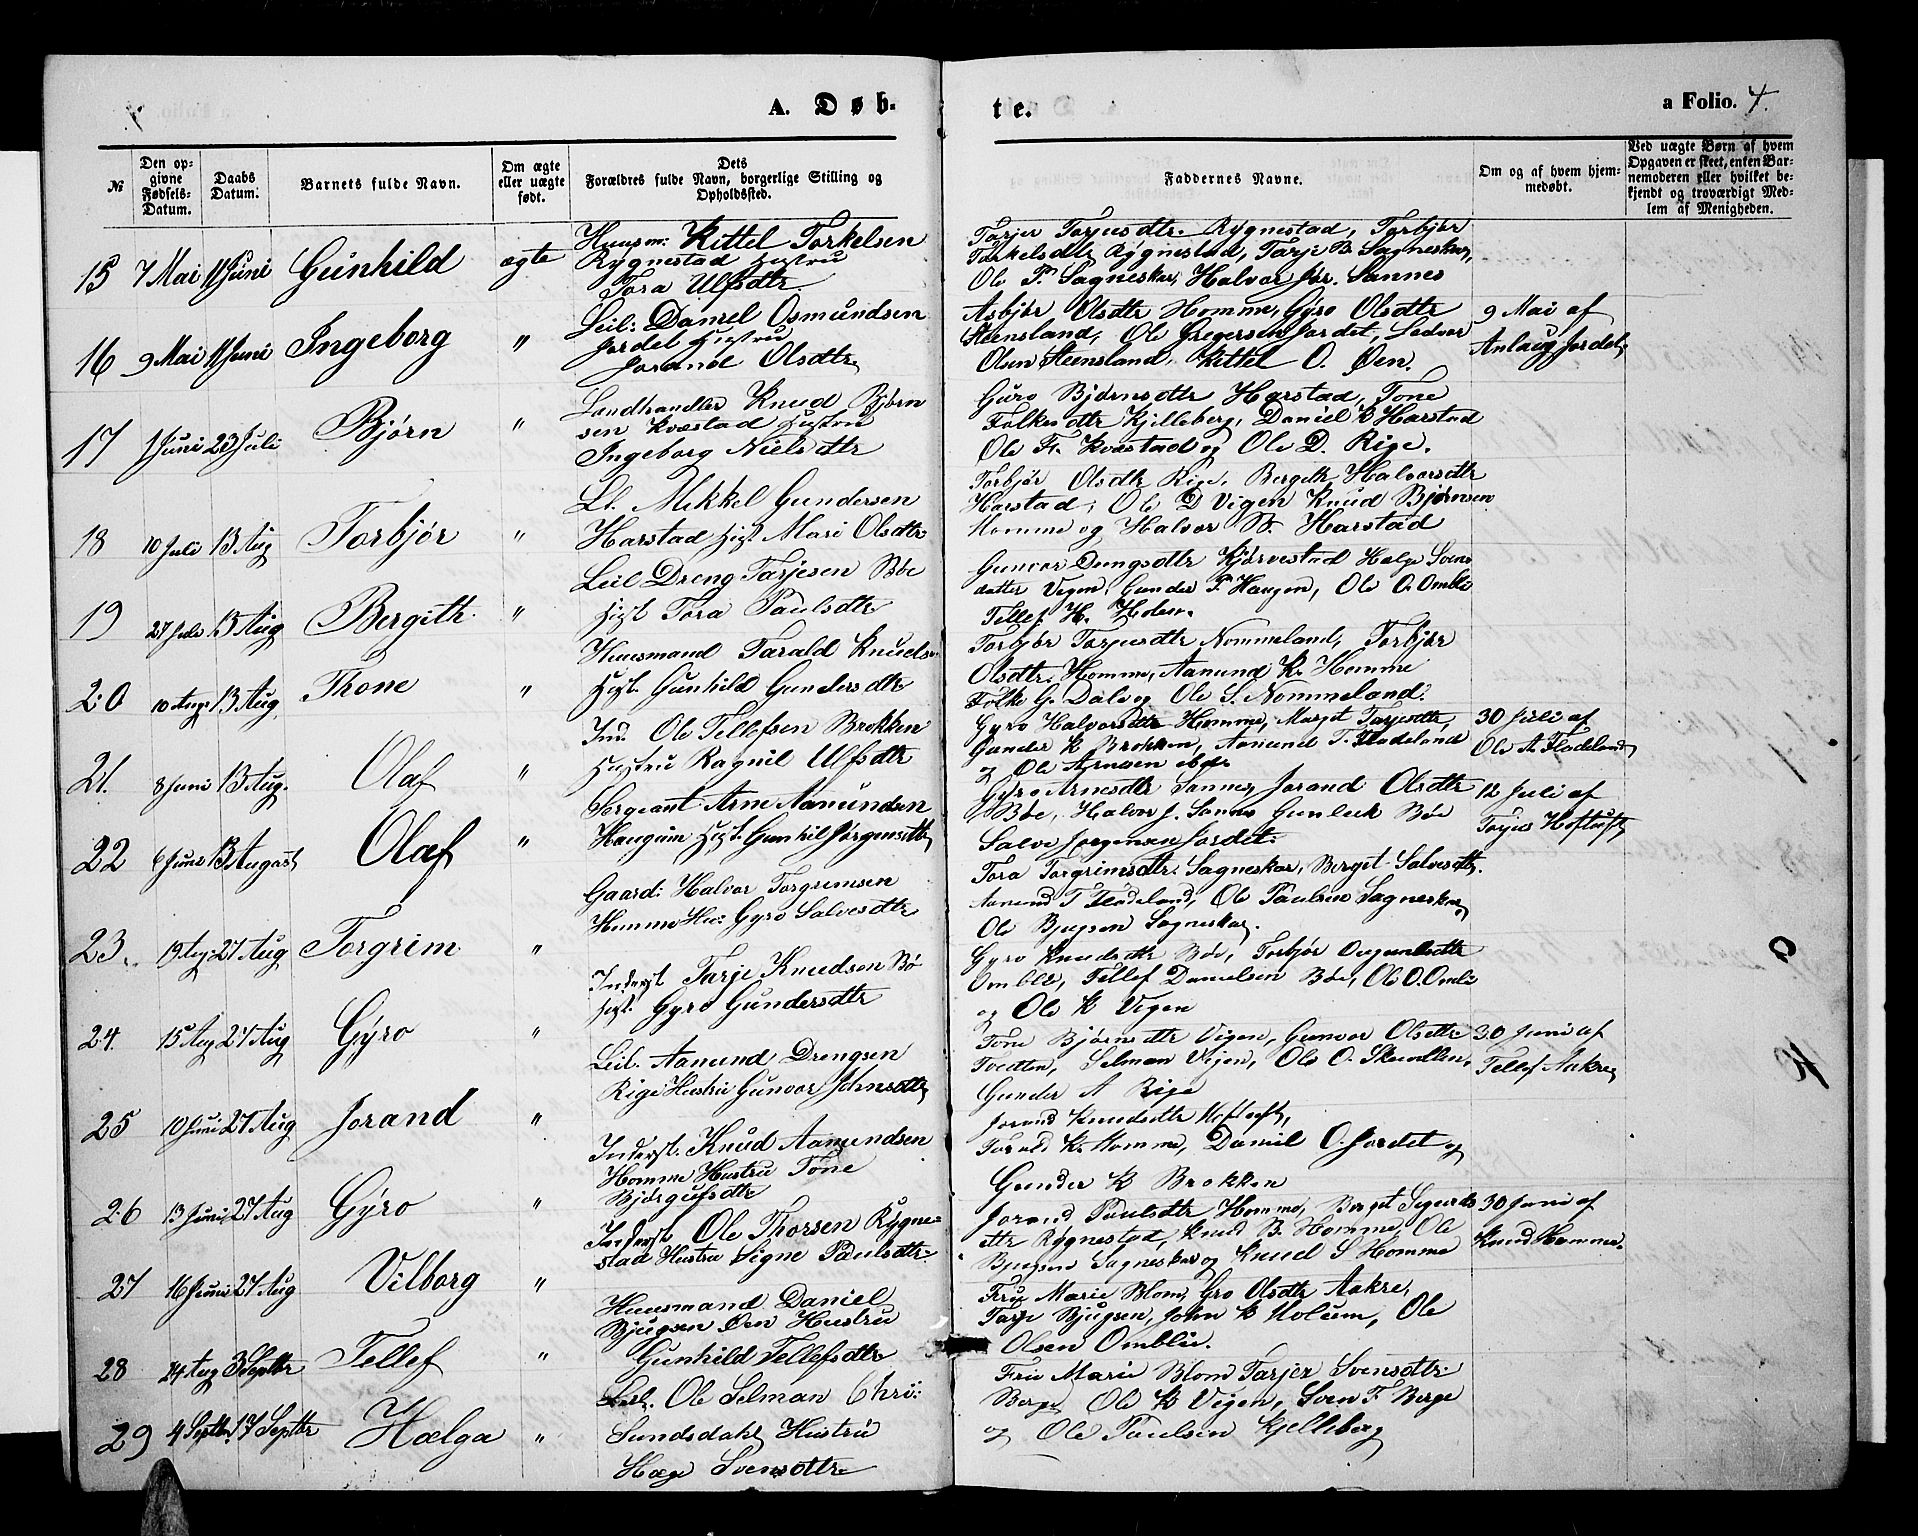 A. Døb-
te.
a Folio. 4.
№
Den op-
givne
Fødsels-
Datum.
Daabs
Datum.
Barnets fulde Navn.
Om ægte
eller uægte
født.
Dets
Forældres fulde Navn, borgerlige Stilling og
Opholdssted.
Faddernes Navne.
Om og af hvem hjem-
medøbt.
Ved uægte Børn af hvem
Opgaven er skeet, enten Bar-
nemoderen eller hvilket be-
kjendt og troværdigt Med-
lem af Menigheden.
15 7 Mai 11 Juni Gunhild ægte
Huusm: Kittel Torkelsen
Rygnestad Hustru
Tora Ulfsdtr.
Tarjer Tarjusdtr. Rygnestad, Torbjør
Torkelsdtr Rygnestad, Tarje B. Sagneskar,
Ole P. Sagneskar, Halvor Jør. Sannes
16 9 Mai 11 Juni Ingeborg "
Leil: Daniel Osmundsen
Jordet Hustru
Jorand Olsdtr
Asbjør Olsdtr Homme, Gyro Olsdtr
Steensland, Ole Gregersen Jordet, Sedvor
Olsen Steensland, Kittel O. Øen.
9 Mai af
Anlaug Jordet
17 1 Juni 23 Juli Bjørn "
Landhandler Knud Bjørn
sen Kvæstad Hustru
Ingeborg Nielsdtr
Guro Bjørnsdtr Harstad, Tone
Folkesdtr Kjelleberg, Daniel K Harstad
Ole F. Kvæstad og Ole D. Rige.
18 10 Juli 13 Aug Torbjør "
Ll. Mikkel Gundersen
Harstad Hst. Mari Olsdtr
Torbjør Olsdtr Rige, Bergith Halvorsdtr
Harstad, Ole D Vigen Knud Bjørnsen
Homme og Halvor Harstad
19 27 Juli 13 Aug Bergith "
Leil Dreng Tarjesen Bøe
Hst Tora Paulsdtr
Gunvor Drengsdtr Kjørvestad Helge Svens
datter Vigen, Gunder P. Haugen, Ole O. Omblie
Tellef H. Holen.
20 10 Aug. 13 Aug. Thone "
Huusmand Tarald Knuds.
Hst. Gunhild Gundersdtr
Torbjør Tarjusdtr Nommeland, Torbjør
Olsdtr. Homme, Aanund K. Homme
Folke G. Dale og Ole S. Nommeland.
21. 8 Juni 13 Aug. Olaf "
Ind. Ole Tellefsen Brokken
Hustru Ragnil Ulfsdtr
Gyro Halvorsdtr Homme, Margit Tarjusdtr,
Gunder K Brokken, Aanund T. Fladeland
og Ole Arnesen
30 Juli af
Ole A. Fladeland
22 6 Juni 13 August Olaf "
Sergeant Arne Aanundsen
Haugum Hst. Gunhil Jørgensdtr
Gyro Arnesdtr Sannes, Jorand Olsdtr
Bøe, Halvor J. Sannes Gunleik Bøe
Salve Jørgensen Jordet.
12 Juli af
Torjus Hoftuft
23. 19 Aug 27 Aug Torgrim "
Gaard: Halvor Torgrimsen
Homme Hu: Gyro Salvesdtr
Tora Torgrimsdtr Sagneskar, Berget Salvesdtr.
Aanund T Fladeland, Ole Paulsen Sagneskar,
Ole Bjugsen Sagneskar.
24. 15 Aug 27 Aug Gyro "
Inderst Tarje Knudsen Bø
Hst. Gyro Gundersdtr
Gyro Knudsdtr Bøe, Torbjør
Omblie, Tellef Danielsen Bøe, Ole O. Omlie
og Ole K Vigen
25 10 Juni 27 Aug Jorand "
Leil. Aanund Drengsen
Rige Hustru Gunvor Johnsdtr
Tone Bjørnsdtr Vigen, Gunvor Olsdtr
Tveitten, Selman Vigen, Ole O.
Gunder A Rige
30 Juni af
Tellef Aakre
26 13 Juni 27 Aug Gyro "
Inderst. Knud Aanundsen
Homme Hustru Tone
Bjørgufsdtr
Jorand Knudsdtr Hoftuft,
Tarald K. Homme, Daniel O. Jordet og
Gunder K Brokken
27 16 Juni 27 Aug Vilborg "
Inderst Ole Thorsen Rygne-
stad Hustru Signe Paulsdtr.
Jorand Paulsdtr Homme, Berget Sigurds
dtr Rygnestad, Knud B. Homme, Ole
Bjugsen Sagneskar og Knud S Homme
30 Juni af
Knud Homme
28 24 Aug 3 Septbr Tellef "
Huusmand Daniel
Bjugsen Øen Hustru
Gunhild Tellefsdtr
Fru Marie Blom, Gro Olsdtr Aakre,
Tarje Bjugsen, John K Holum, Ole
Olsen Omblie.
29 4 Septbr 17 Septbr Hælga "
Leil. Ole Selman Chri:
Sundsdahl Hustru
Hæge Svensdtr
Fru Marie Blom Tarjer Svensdtr
Berge, Ole K Vigen, Sven F. Berge
og Ole Paulsen Kjelleberg